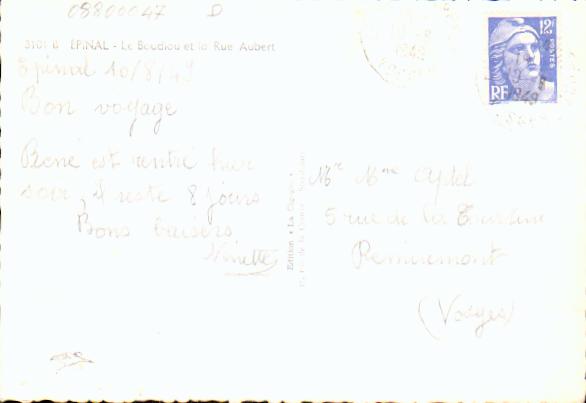 08800047 D
3101 B ÉPINAL - Le Boudiou et la Rue Aubert
Epinal 10/8/49
Bon voyage
René est rentré hier
soir, il reste 8 jours
Bons baisers
Ninette
Edition « La Cigogne »
12F
POSTES
RF
Mr Mme Aptel
5 rue de la
Remiremont
(Vosges)